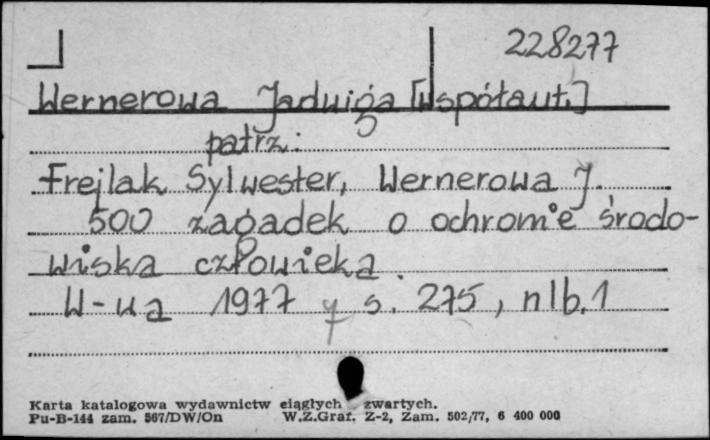 228277
Wernerowa Jadwiga [współaut.]
patrz:
Frejlak Sylwester, Wernerowa J.
500 zagadek o ochronie środo-
wiska człowieka.
W-wa 1977 s. 275, nlb. 1
Karta katalogowa wydawnictw ciągłych zwartych.
Pu-B-144 zam. 567/DW/On W.Z.Graf. Z-2, Zam. 502/77, 6 400 000